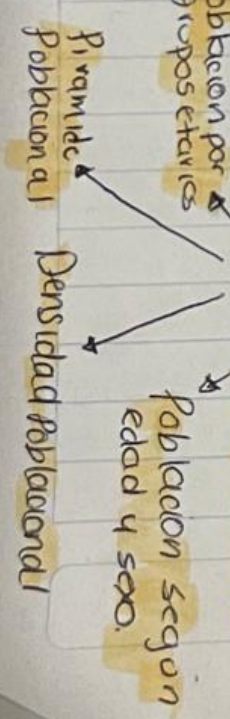 población por
grupos etarios
Piramide
Poblacional
Densidad Poblacional
Población según
edad y sexo.